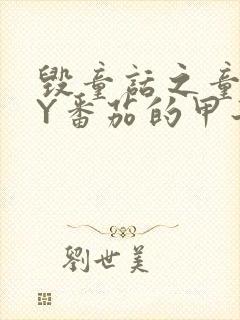 毁童话之童
Y番茄的甲
劉世美